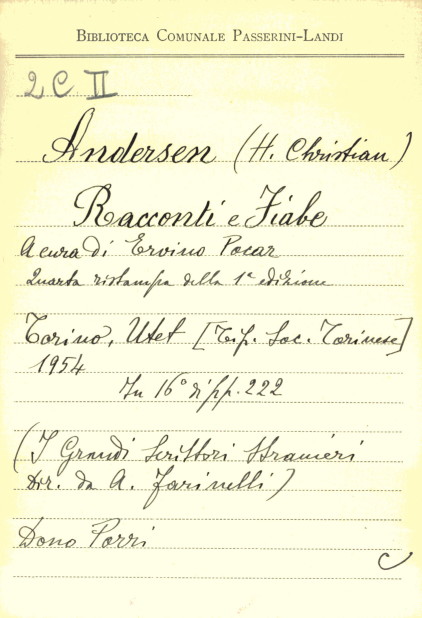 BIBLIOTECA COMUNALE PASSERINI-LANDI
2 C II
Andersen (H. Christian)
Racconti e Fiabe
A cura di Ervino Pocar
Quarta ristampa della 1ª edizione
Torino, Utet [Tip. Soc. Torinese]
1954
In 16° di pp. 222
(I Grandi Scrittori Stranieri
Dir. da A. Farinelli)
Dono Porri
C